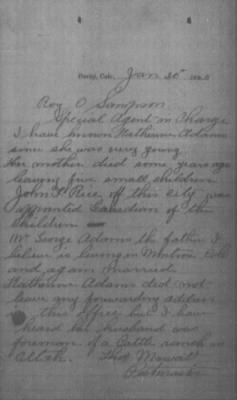 Ouray, Colo., Jan 20" 19
Roy O Sampson
Special Agent in Charge
I have known Katherine Adams
since she was very young
Her mother died some years ago
leaving five small children
John P. Rice of this city was
appointed Guardian of the
Children
Mr George Adams the father I
believe is living in Montrose Colo
and again married.
Katherine Adams did not
leave any forwarding address
in this office but I have
heard her husband was
foreman of a cattle ranch in
Utah.
Postmaster